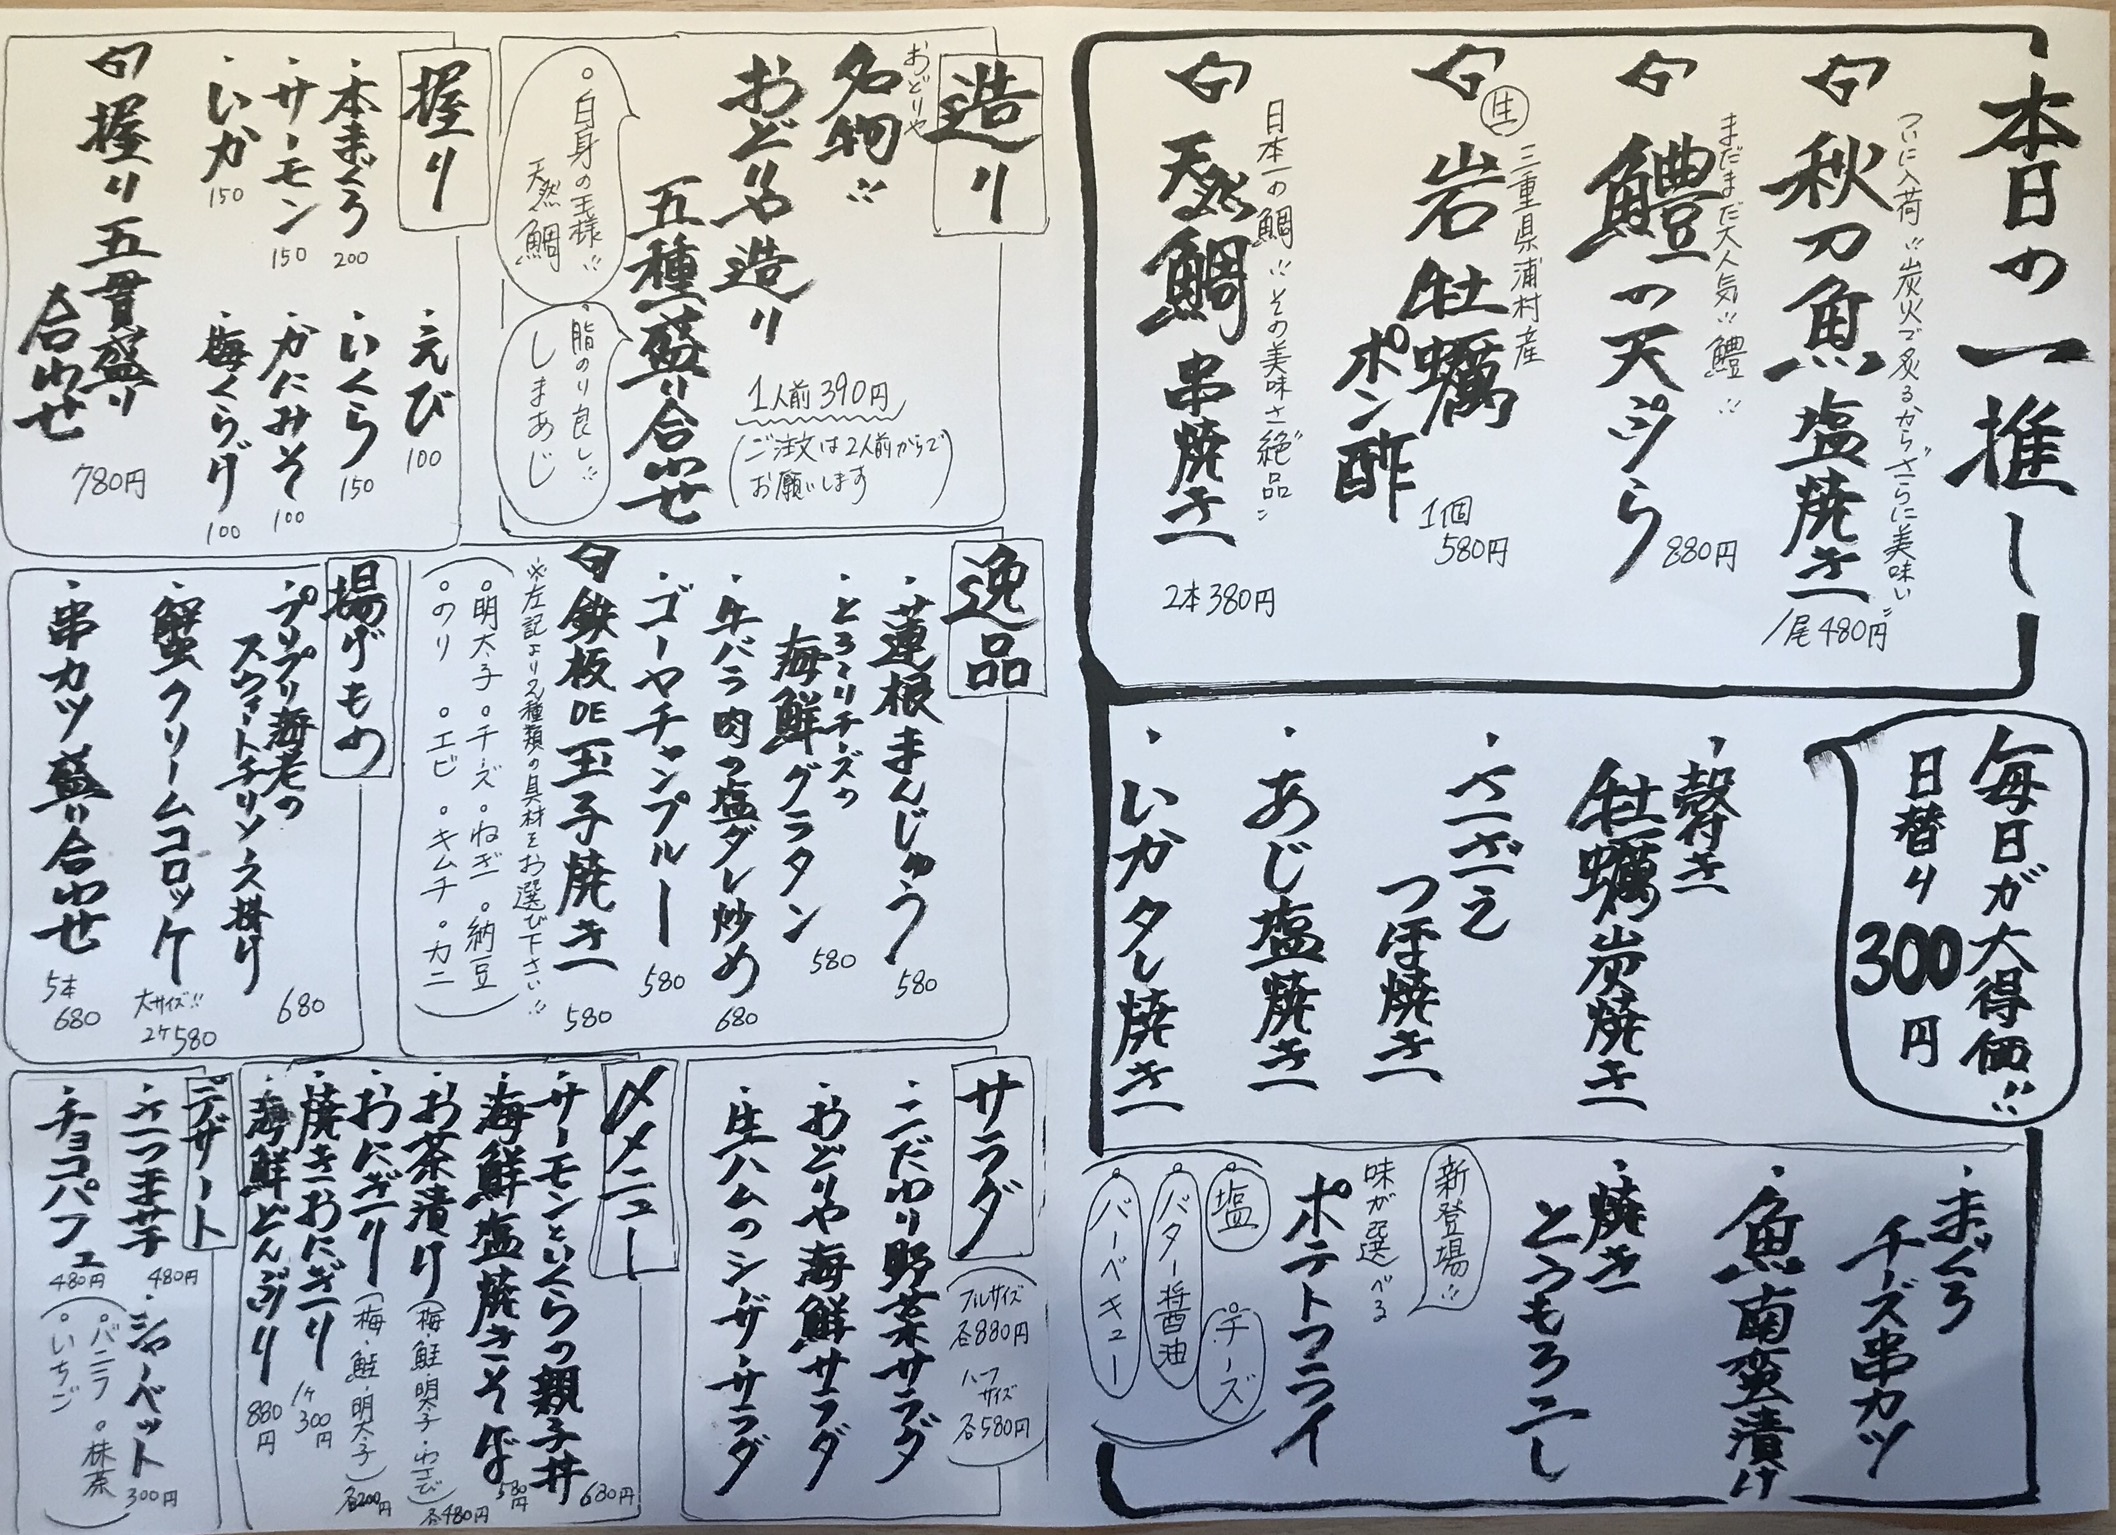 本日の一推し
ついに入荷!!炭火で炙るからさらに美味い
秋刀魚塩焼き
1尾480円
まだまだ大人気!!鱧!!
鱧の天ぷら
880円
三重県浦村産
生
岩牡蠣
ポン酢
1個
580円
日本一の鯛!!その美味さ絶品
天然鯛串焼き
2本380円
毎日が大得価!!
日替り
300円
・殻付き
牡蠣炭焼き
・さざえ
つぼ焼き
・あじ塩焼き
・いかタレ焼き
・まぐろ
チーズ串カツ
・魚南蛮漬け
・焼き
とうもろこし
新登場!!
味が選べる
ポテトフライ
塩
チーズ
バター醤油
バーベキュー
造り
おどりや
名物!!
おどりや造り
五種盛り合わせ
1人前390円
(ご注文は2人前からで
お願いします)
白身の王様!!
天然鯛
脂のり良し!!
しまあじ
握り
・本まぐろ
200
・サーモン
150
・いか
150
・えび
100
・いくら
150
・かにみそ
100
・梅くらげ
100
握り五貫盛り
合わせ
780円
逸品
・蓮根まんじゅう
580
・とろ〜りチーズの
海鮮グラタン
580
・牛バラ肉の塩ダレ炒め
680
・ゴーヤチャンプルー
580
鉄板DE玉子焼き
580
※左記より2種類の具材をお選び下さい!!
(○明太子 ○チーズ ○ねぎ ○納豆
○のり ○エビ ○キムチ ○カニ)
揚げもの
・プリプリ海老の
スウィートチリソース掛け
680
・蟹クリームコロッケ
大サイズ!!
2ケ580
・串カツ盛り合わせ
5本
680
サラダ
(フルサイズ
各880円
ハーフ
サイズ
各580円)
・こだわり野菜サラダ
・おどりや海鮮サラダ
・生ハムのシーザーサラダ
〆メニュー
・サーモンといくらの親子丼
680円
・海鮮塩焼きそば
580円
・お茶漬け(梅・鮭・明太子・わさび)
各480円
・おにぎり(梅・鮭・明太子)
各200円
・焼きおにぎり
1ケ
300円
・海鮮どんぶり
880円
デザート
・さつま芋
480円
・シャーベット
300円
・チョコパフェ
480円
(○バニラ ○抹茶
○いちご)